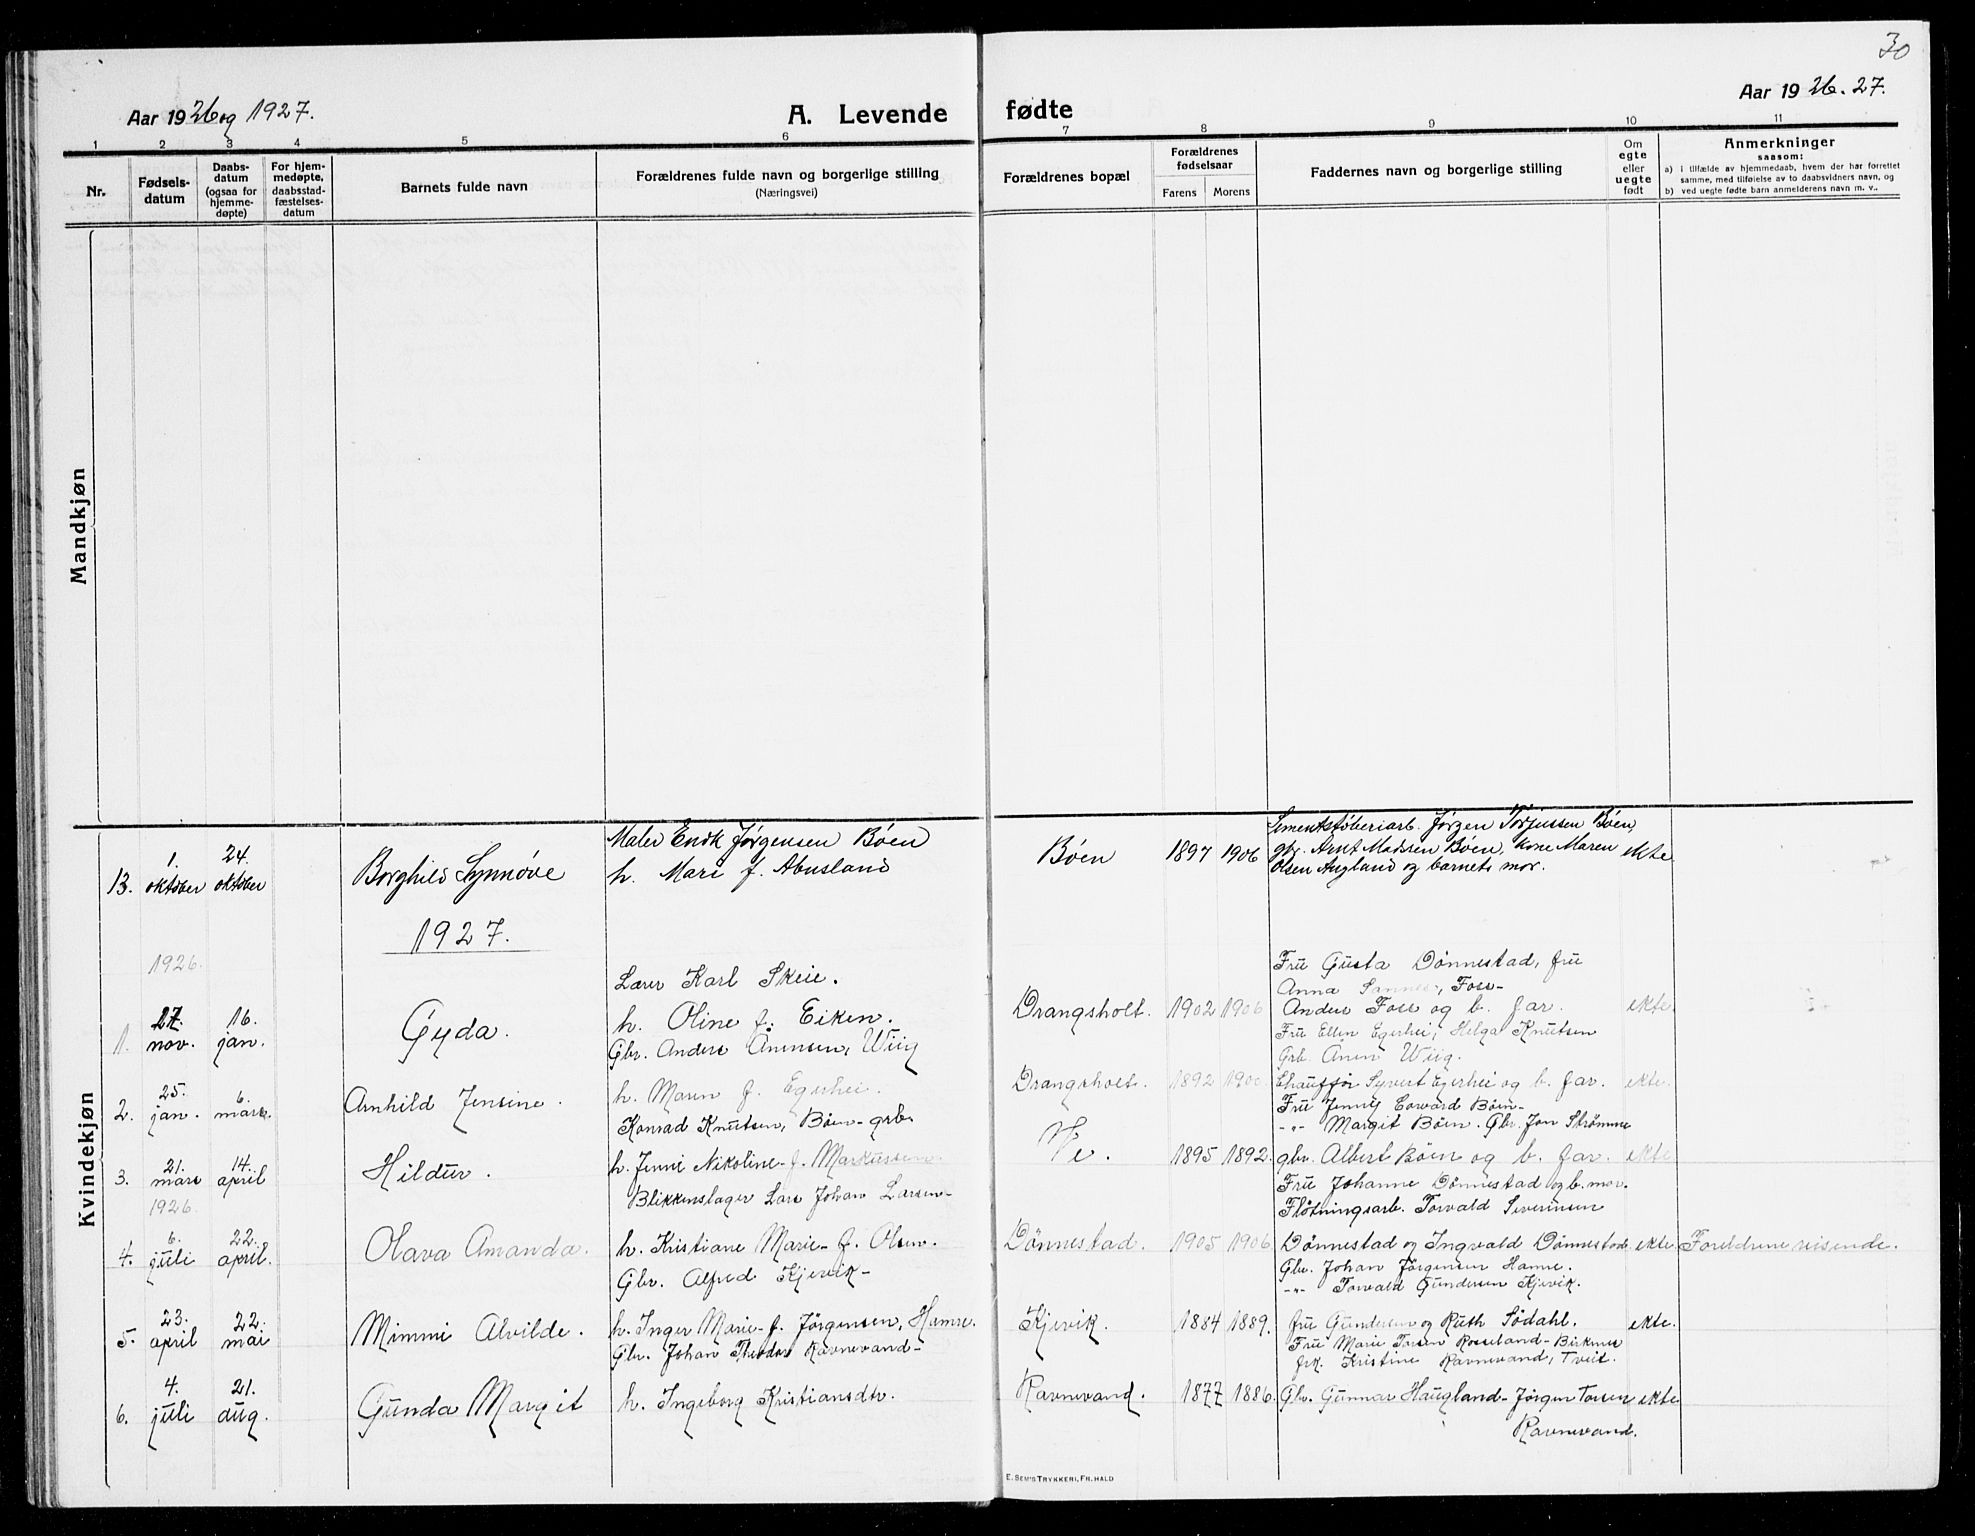 30
Aar 1926 og 1927.
A. Levende fødte
Aar 1926.27.
1 2 3 4 5 6 7 8 9 10 11
Nr.
Fødsels-
datum
Daabs-
datum
(ogsaa for
hjemme-
døpte)
For hjem-
medøpte,
daabsstad-
fæstelses-
datum
Barnets fulde navn
Forældrenes fulde navn og borgerlige stilling
(Næringsvei)
Forældrenes bopæl
Forældrenes
fødselsaar
Farens Morens
Faddernes navn og borgerlige stilling
Om
egte
eller
uegte
født
Anmerkninger
saasom:
a) i tilfælde av hjemmedaab, hvem der har forrettet
samme, med tilføielse av to daabsvidners navn, og
b) ved uegte fødte barn anmelderens navn m. v..
Mandkjøn
Kvindekjøn
13.
1.
oktober
24.
oktober
Borghild Synnøve
Maler Endr Jørgensen Bøen
h. Mari f. Abusland
Bøen
1897 1906
Sementstøberiarb. Jørgen Torjussen Bøen,
gbr. Arnt Madsen Bøen, kone Maren
Olsen Augland og barnets mor.
ekte
1927.
1926.
1.
27.
nov.
16.
jan.
Gyda.
Lærer Karl Skeie.
h. Oline f. Eiken.
Drangsholt.
1902 1906
Fru Gusta Dönnestad, fru
Anna Sannes, Foss-
Anders Foss og b. far.
ekte.
2.
25.
jan.
6.
mars.
Arnhild Jensine.
Gbr. Anders Anensen, Wiig
h. Maren f. Egerhei.
Drangsholt.
1892 1900.
Fru Ellen Egerhei, Helga Knutsen
Grb. Anen Wiig.
Chauffør Syvert Egerhei og b. far.
ekte.
3.
21.
mars
14.
april
Hildur.
Konrad Knutsen, Böen-grb.
h. Jenni Nikoline f. Markussen.
Ve.
1895 1892.
Fru Jenny Edvard Böen-
-"- Margit Böen. Gbr. Jon Strömme
gbr. Albert Böen og b. far.
ekte
1926.
4.
6.
juli
22.
april.
Olava Amanda.
Blikkenslager Lars Johan Larsen-
h. Kristiane Marie f. Olsen.
Dönnestad.
1905 1906
Fru Johanne Dönnestad og b. mor.
Flötningsarb. Torvald Severinsen
Dönnestad og Ingvald Dönnestad
ekte
Foreldrene reisende.
5.
23.
april
22.
mai
Mimmi Alvilde.
Gbr. Alfred Kjevik-
h. Inger Marie f. Jörgensen, Hamre.
Kjevik.
1884 1889.
Gbr. Johan Jörgensen Hamre.
-"- Torvald Gundersen Kjevik.
fru Gundersen og Ruth Södahl.
ekte.
6.
4.
juli
21.
aug.
Gunda Margit
Gbr. Johan Theodor Ravnevand-
h. Ingeborg Kristiansdtr.
Ravnevand.
1877 1886.
Fru Marie Torsen Rosseland-Birkenes
frk. Kristine Ravnevand, Tveit.
Gbr. Gunnar Haugland-Jörgen Torsen
Ravnevand.
ekte
E. SEM'S TRYKKERI, FR. HALD